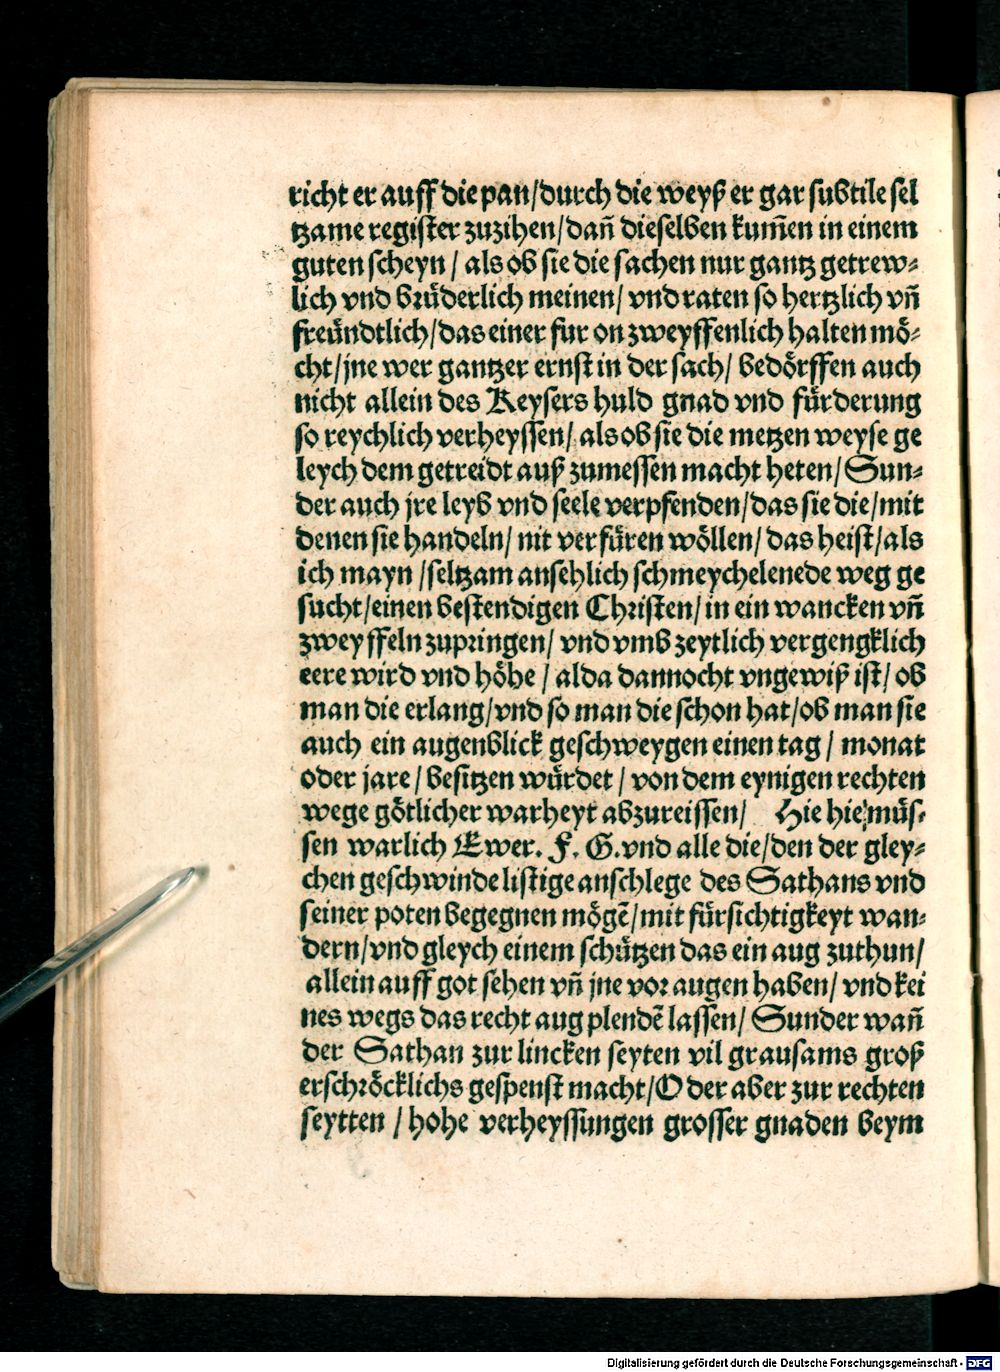 richt er auff die pan/durch die weyß er gar subtile sel
tzame register zuzihen/dañ dieselben kum̃en in einem
guten scheyn / als ob sie die sachen nur gantz getrew⸗
lich vnd brüderlich meinen/ vnd raten so hertzlich vñ
freündtlich/das einer fur on zweyffenlich halten mö⸗
cht/jne wer gantzer ernst in der sach/ bedörffen auch
nicht allein des Keysers huld gnad vnd fürderung
so reychlich verheyssen/ als ob sie die metzen weyse ge
leych dem getreidt auß zumessen macht heten/Sun⸗
der auch jre leyb vnd seele verpfenden/das sie die/mit
denen sie handeln/ nit verfüren wöllen/ das heist/als
ich mayn /seltzam ansehlich schmeychelenede weg ge
sucht/einen bestendigen Christen/in ein wancken vñ
zweyffeln zupringen/ vnd vmb zeytlich vergengklich
eere wird vnd höhe / alda dannocht vngewiß ist/ ob
man die erlang/vnd so man die schon hat/ob man sie
auch ein augenblick geschweygen einen tag / monat
oder jare / besitzen würdet / von dem eynigen rechten
wege götlicher warheyt abzureissen/ Hie hie müs⸗
sen warlich Ewer. F. G. vnd alle die/den der gley⸗
chen geschwinde listige anschlege des Sathans vnd
seiner poten begegnen mögẽ/mit fürsichtigkeyt wan⸗
dern/vnd gleych einem schützen das ein aug zuthun/
allein auff got sehen vñ jne vor augen haben/ vnd kei
nes wegs das recht aug plendẽ lassen/ Sunder wañ
der Sathan zur lincken seyten vil grausams groß
erschröcklichs gespenst macht/Oder aber zur rechten
seytten / hohe verheyssungen grosser gnaden beym
Digitalisierung gefördert durch die Deutsche Forschungsgemeinschaft - DFG